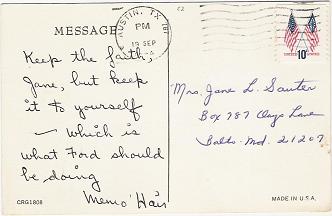 MESSAGE
AUSTIN, TX
PM
19 SEP
Keep the faith,
Jane, but keep
it to yourself
— which is
what Ford should
be doing.
Memo' Hair
CRG1808
10¢
Mrs. Jane L. Sauter
Box 787 Lane
Balto. Md. 21207
MADE IN U.S.A.